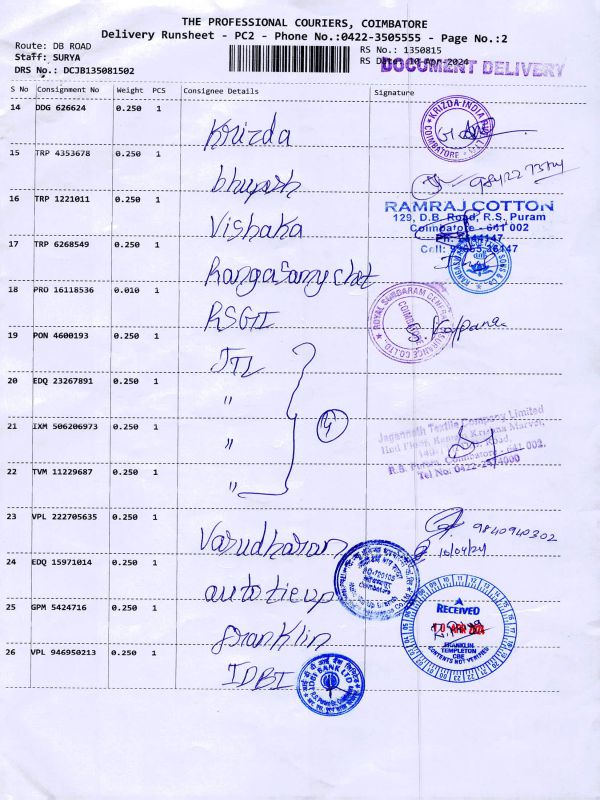 THE PROFESSIONAL COURIERS, COIMBATORE
Delivery Runsheet - PC2 - Phone No.:0422-3505555 - Page No.:2
Route: DB ROAD
RS No.: 1350815
Staff: SURYA
RS Date: 10-Apr-2024
DRS No.: DCJB135081502
DOCUMENT DELIVERY
S No Consignment No Weight PCS Consignee Details Signature
14 DDG 626624 0.250 1
Krizda
KRIZDA INDIA
COIMBATORE
15 TRP 4353678 0.250 1
bhupesh
16 TRP 1221011 0.250 1
Vishaka
RAMRAJ COTTON
129, D.B. Road, R.S. Puram
Coimbatore - 641 002
17 TRP 6268549 0.250 1
RangaSamy chet
18 PRO 16118536 0.010 1
RSGI
ROYAL SUNDARAM GENERAL INSURANCE CO. LTD
COIMBATORE
S. Kalpana
19 PON 4600193 0.250 1
JTL
20 EDQ 23267891 0.250 1
"
21 IXM 506206973 0.250 1
"
Jagannath Textile Company Limited
R.S. Puram, Coimbatore - 641 002.
22 TVM 11229687 0.250 1
"
23 VPL 222705635 0.250 1
Varudharan
9840940302
10/04/24
24 EDQ 15971014 0.250 1
auto tie up
Coimbatore
25 GPM 5424716 0.250 1
Franklin
RECEIVED
10 APR 2024
FRANKLIN
TEMPLETON
CBE
CONTENTS NOT VERIFIED
26 VPL 946950213 0.250 1
IDBI
IDBI BANK LTD